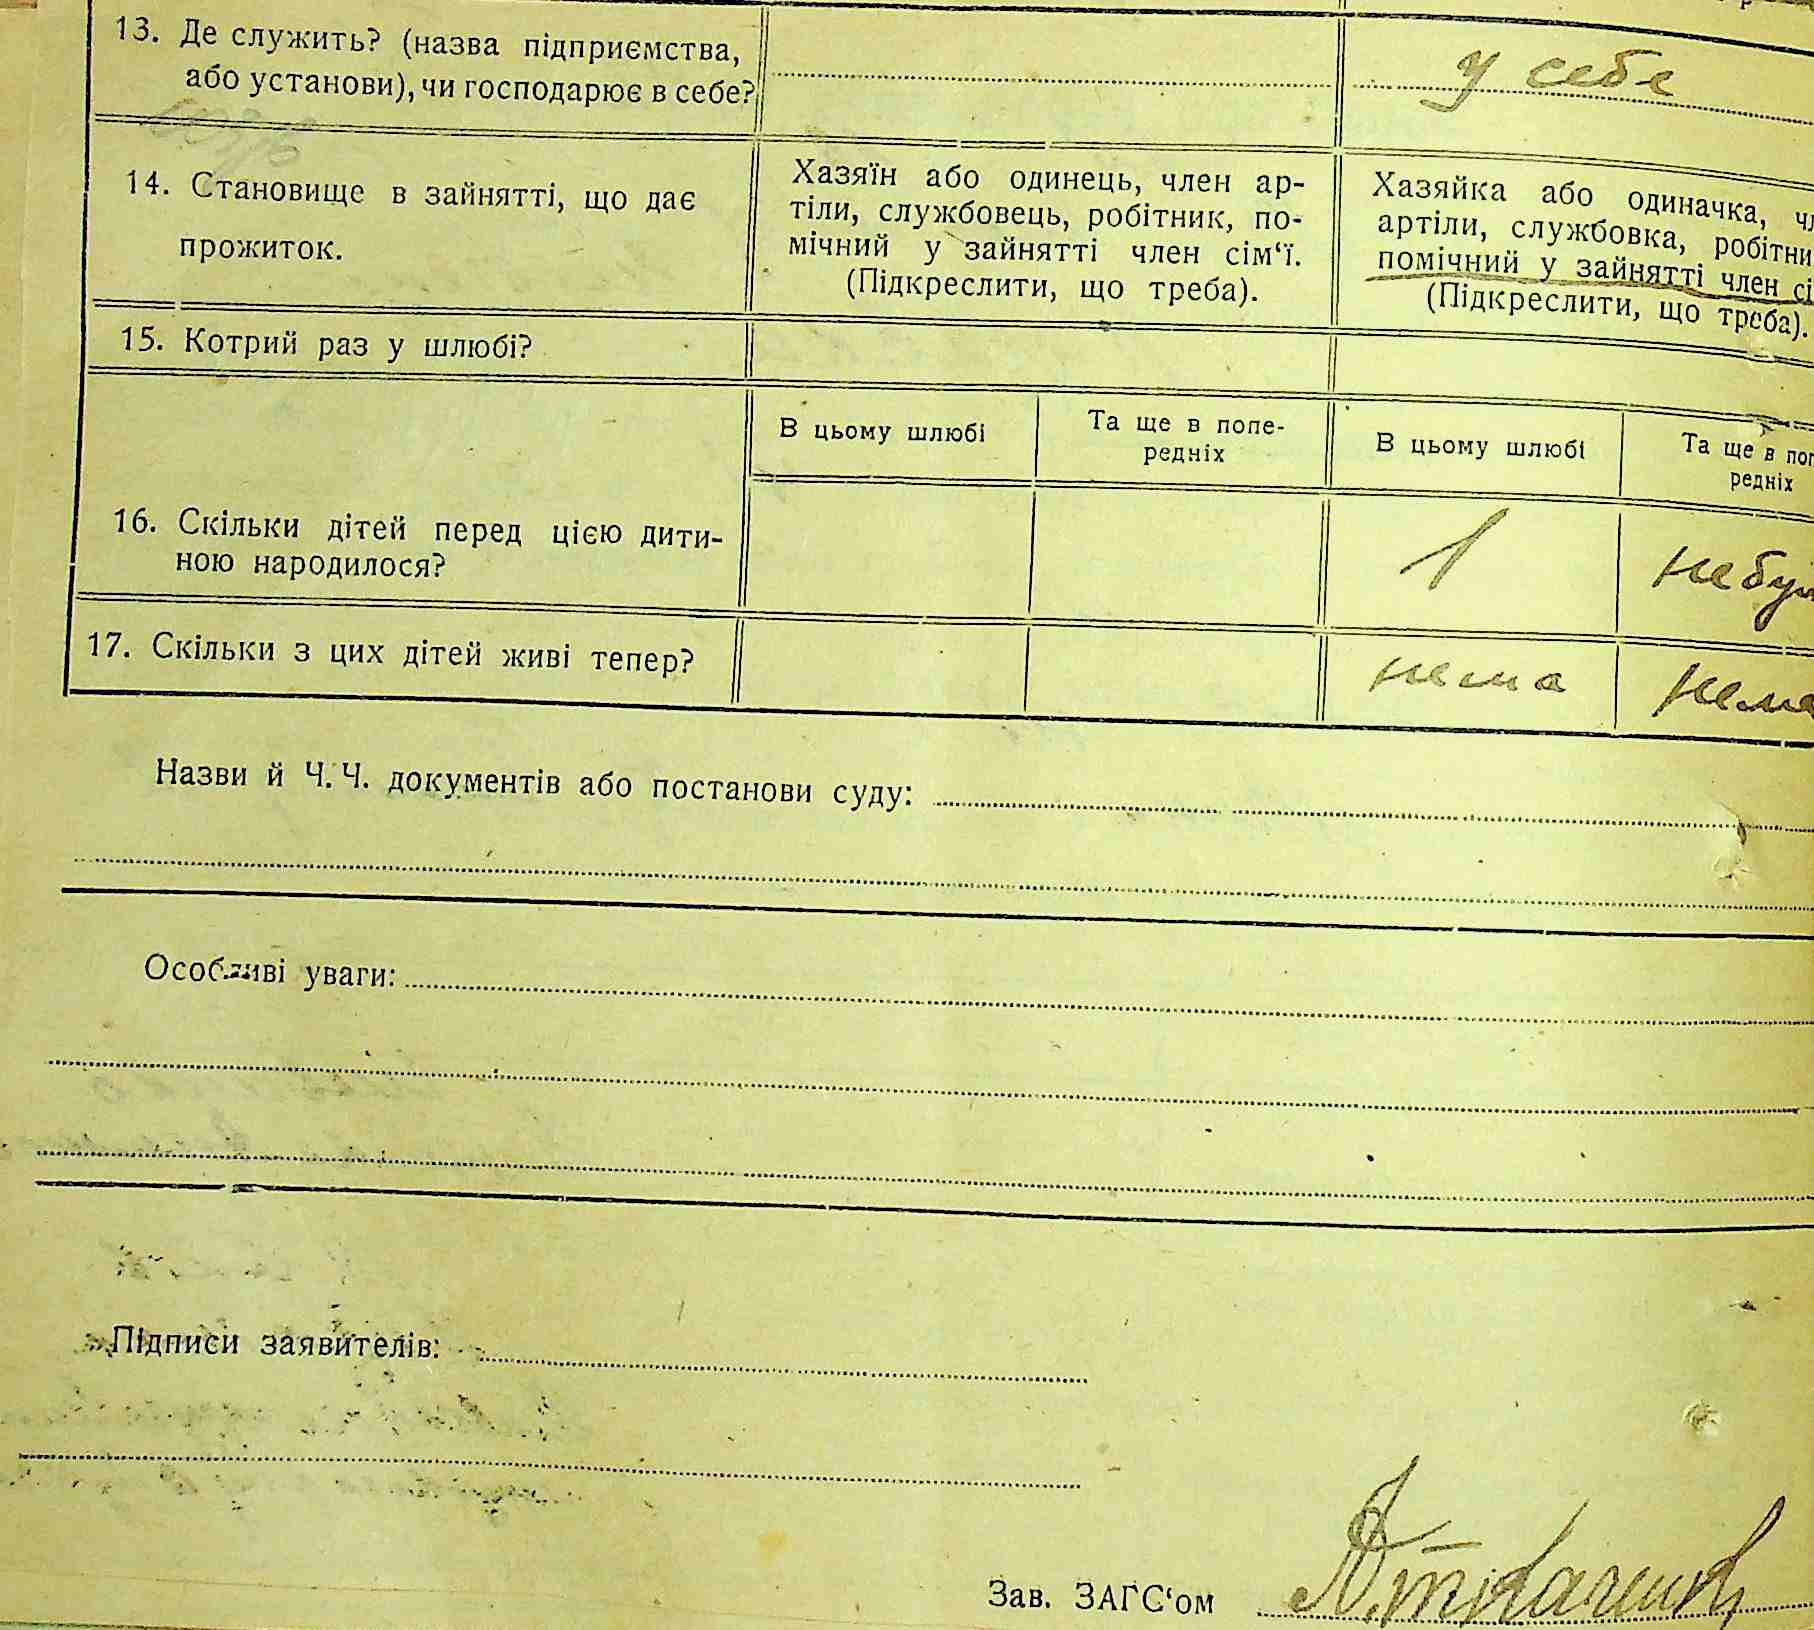 13. Де служить? (назва підприємства,
або установи), чи господарює в себе?
у себе
14. Становище в зайнятті, що дає
прожиток.
Хазяїн або одинець, член ар-
тіли, службовець, робітник, по-
мічний у зайнятті член сім‘ї.
(Підкреслити, що треба).
Хазяйка або одиначка, чл
артіли, службовка, робітни
помічний у зайнятті член сі
(Підкреслити, що треба).
15. Котрий раз у шлюбі?
В цьому шлюбі
Та ще в попе-
редніх
В цьому шлюбі
Та ще в поп
редніх
16. Скільки дітей перед цією дити-
ною народилося?
1
не бул
17. Скільки з цих дітей живі тепер?
нема
нема
Назви й Ч. Ч. документів або постанови суду:
Особливі уваги:
Підписи заявителів:
Зав. ЗАГС‘ом